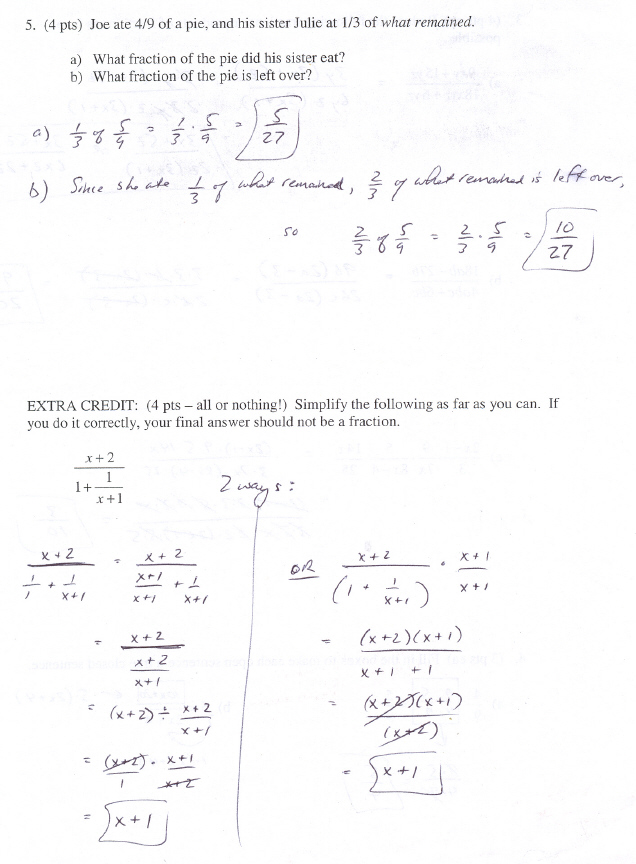 5. (4 pts) Joe ate 4/9 of a pie, and his sister Julie at 1/3 of what remained.
a) What fraction of the pie did his sister eat?
b) What fraction of the pie is left over?
a) 1/3 of 5/9 = 1/3 · 5/9 = 5/27
b) Since she ate 1/3 of what remained, 2/3 of what remained is left over,
so 2/3 of 5/9 = 2/3 · 5/9 = 10/27
EXTRA CREDIT: (4 pts – all or nothing!) Simplify the following as far as you can. If
you do it correctly, your final answer should not be a fraction.
(x+2)/(1+1/(x+1))
2 ways:
(x+2)/(1/1 + 1/(x+1)) = (x+2)/((x+1)/(x+1) + 1/(x+1))
= (x+2)/((x+2)/(x+1))
= (x+2) ÷ (x+2)/(x+1)
= (x+2)/1 · (x+1)/(x+2)
= x+1
OR (x+2)/(1 + 1/(x+1)) · (x+1)/(x+1)
= (x+2)(x+1)/(x+1+1)
= (x+2)(x+1)/(x+2)
= x+1